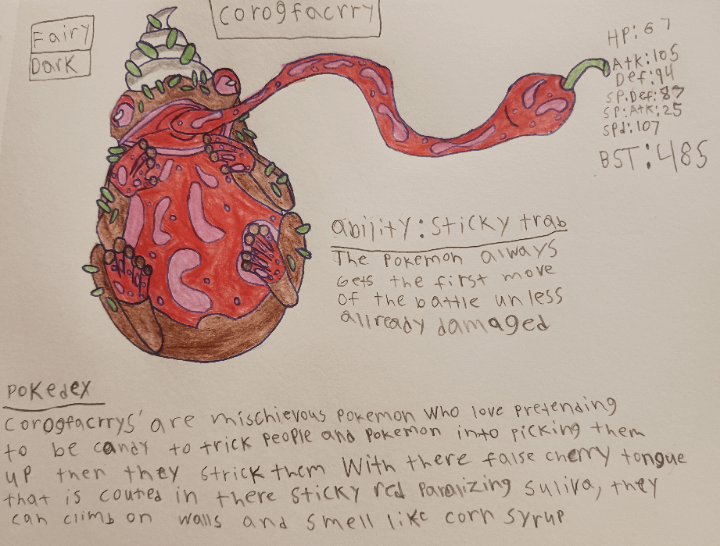 Fairy
Dark
Corogfacrry
HP: 67
Atk: 105
Def: 94
SP. Def: 87
SP. Atk: 25
Spd: 107
BST: 485
ability: Sticky trab
The Pokemon always
Gets the first move
of the battle unless
allready damaged
Pokedex
Corogfacrrys' are mischievous Pokemon who love pretending
to be candy to trick people and Pokemon into picking them
up then they strick them with there false cherry tongue
that is couted in there sticky red Paralizing Suliva, they
can climb on walls and smell like corn syrup